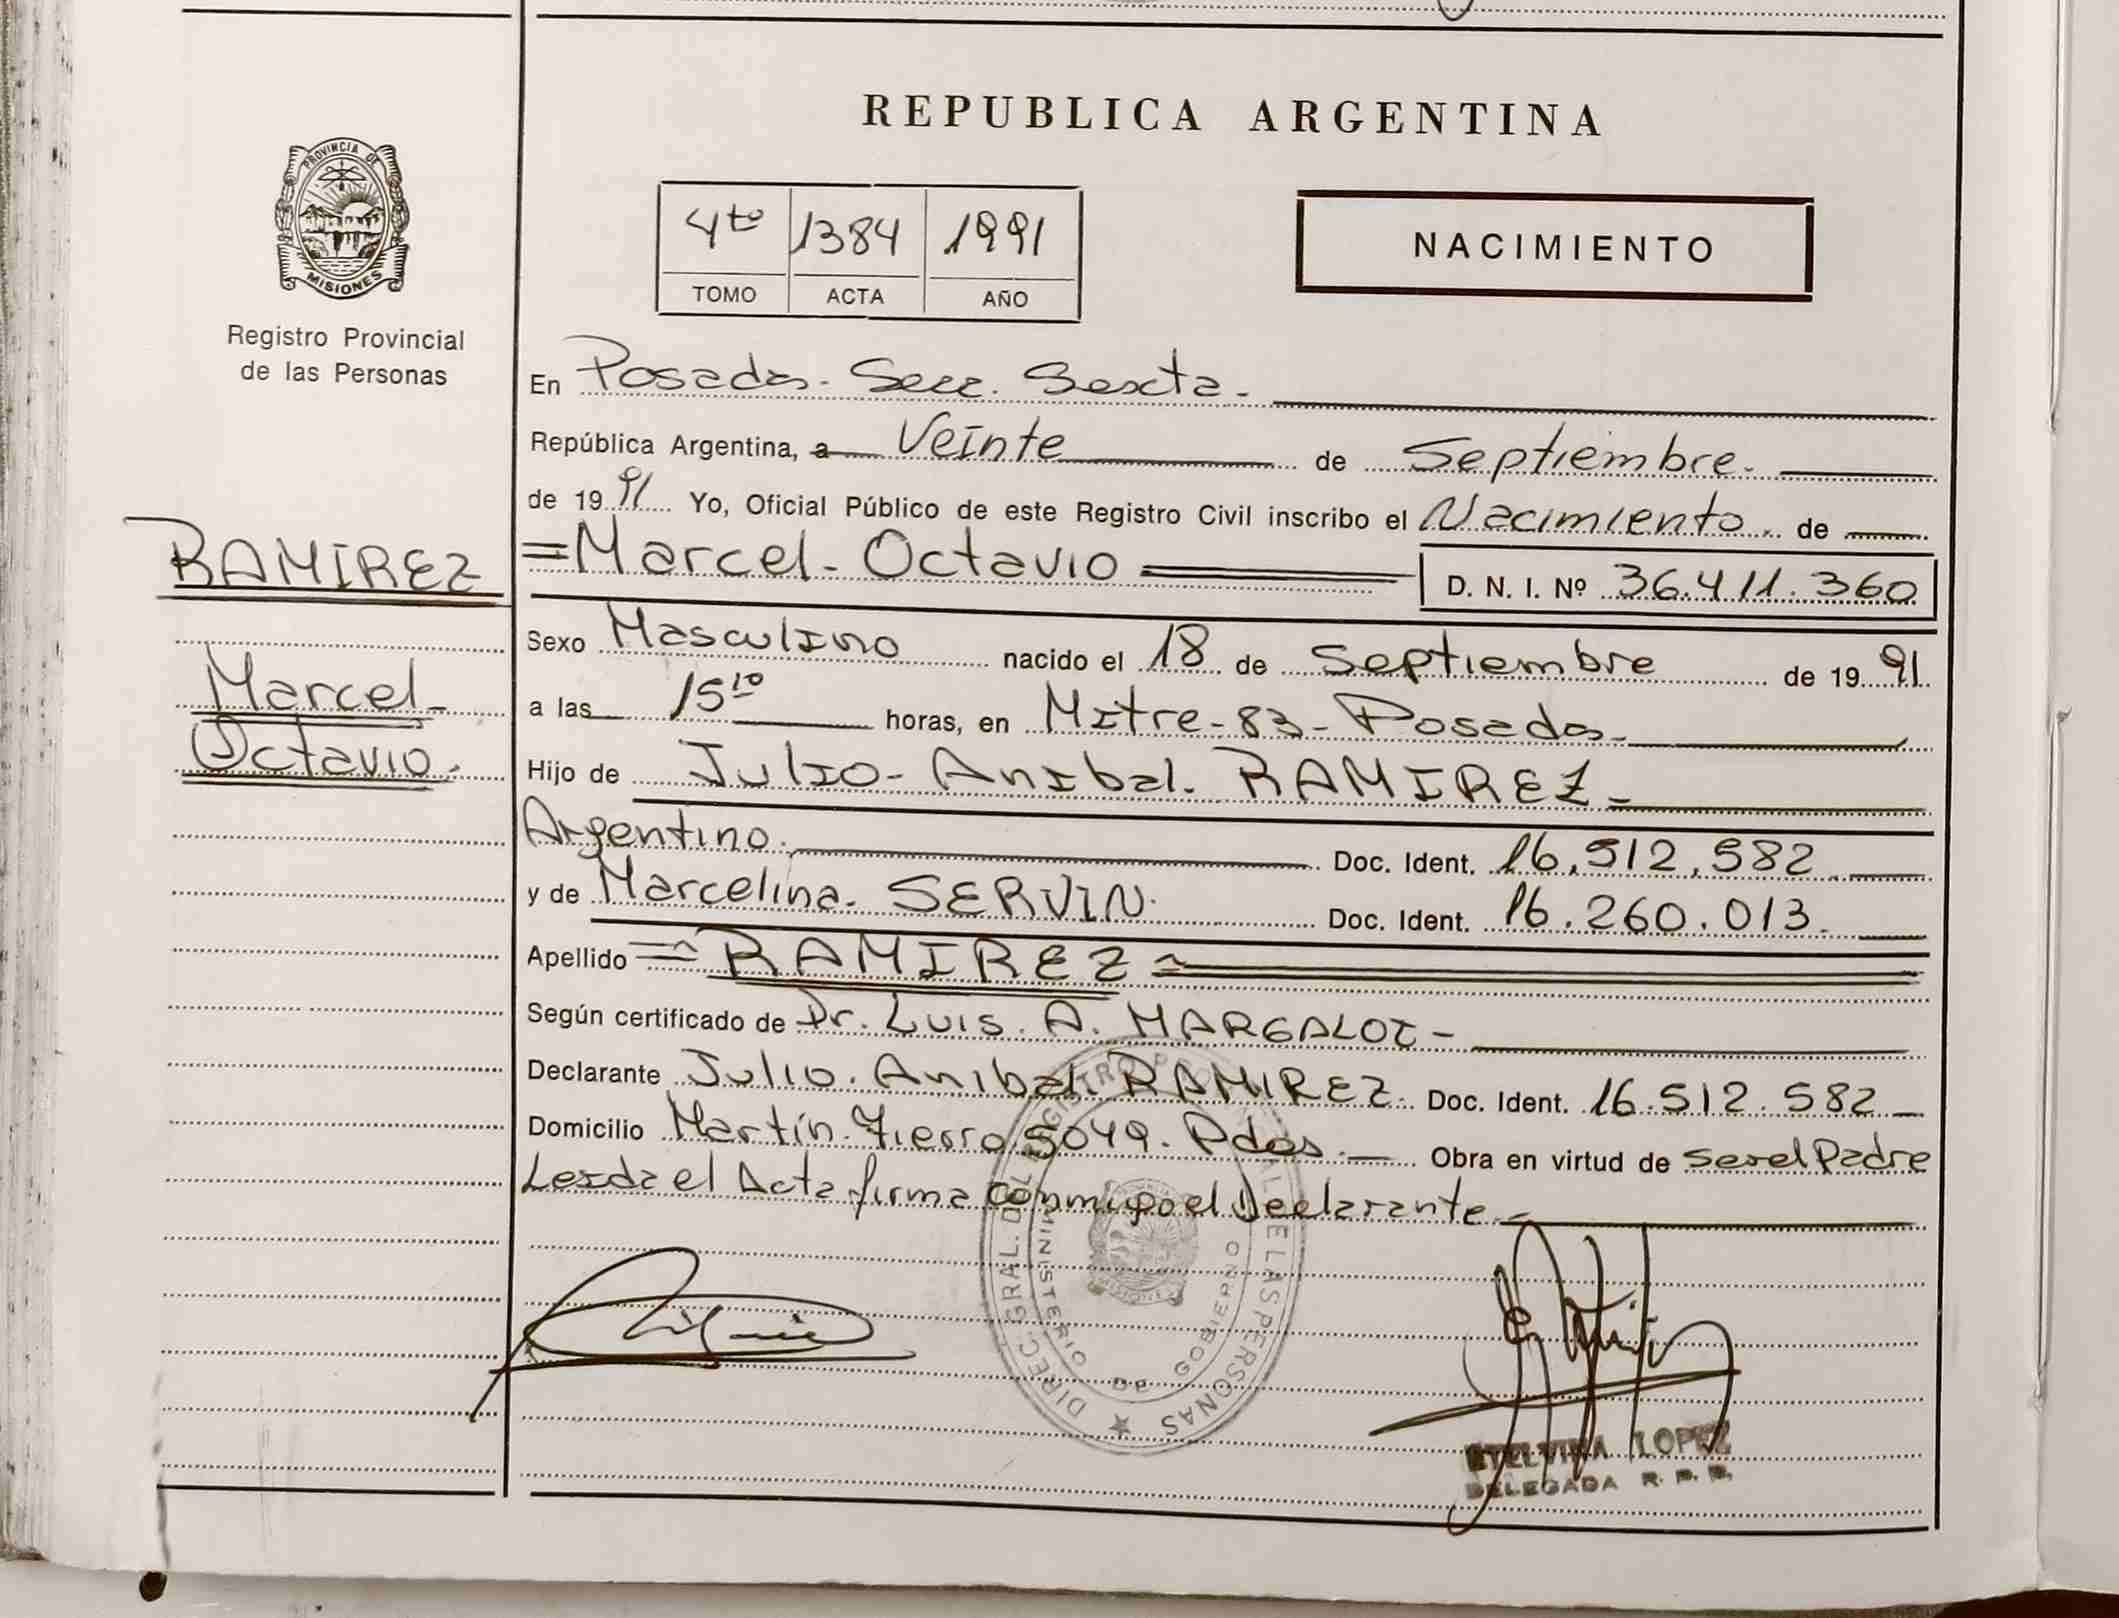 REPUBLICA ARGENTINA
PROVINCIA DE
MISIONES
Registro Provincial
de las Personas
4to 1384 1991
TOMO ACTA AÑO
NACIMIENTO
En Posadas. Secc. Sexta.
República Argentina, a Veinte de Septiembre.
de 1991 Yo, Oficial Público de este Registro Civil inscribo el Nacimiento. de
RAMIREZ
Marcel-
Octavio.
=Marcel- Octavio
D. N. I. Nº 36.411.360
Sexo Masculino nacido el 18 de Septiembre de 1991
a las 15 10 horas, en Mitre-83-Posadas-
Hijo de Julio-Anibal. RAMIREZ-
Argentino. Doc. Ident. 16.512.582
y de Marcelina. SERVIN. Doc. Ident. 16.260.013.
Apellido =RAMIREZ=
Según certificado de Dr. Luis. A. MARGALOT-
Declarante Julio. Anibal. RAMIREZ. Doc. Ident. 16.512.582
Domicilio Martín. Fierro 5049. Pdas. Obra en virtud de ser el Padre
Leida el Acta firma conmigo el Declarante.-
DIREC. GRAL. DEL REGISTRO DE LAS PERSONAS
MINISTERIO DE GOBIERNO
ETELVINA LOPEZ
DELEGADA R. P. P.